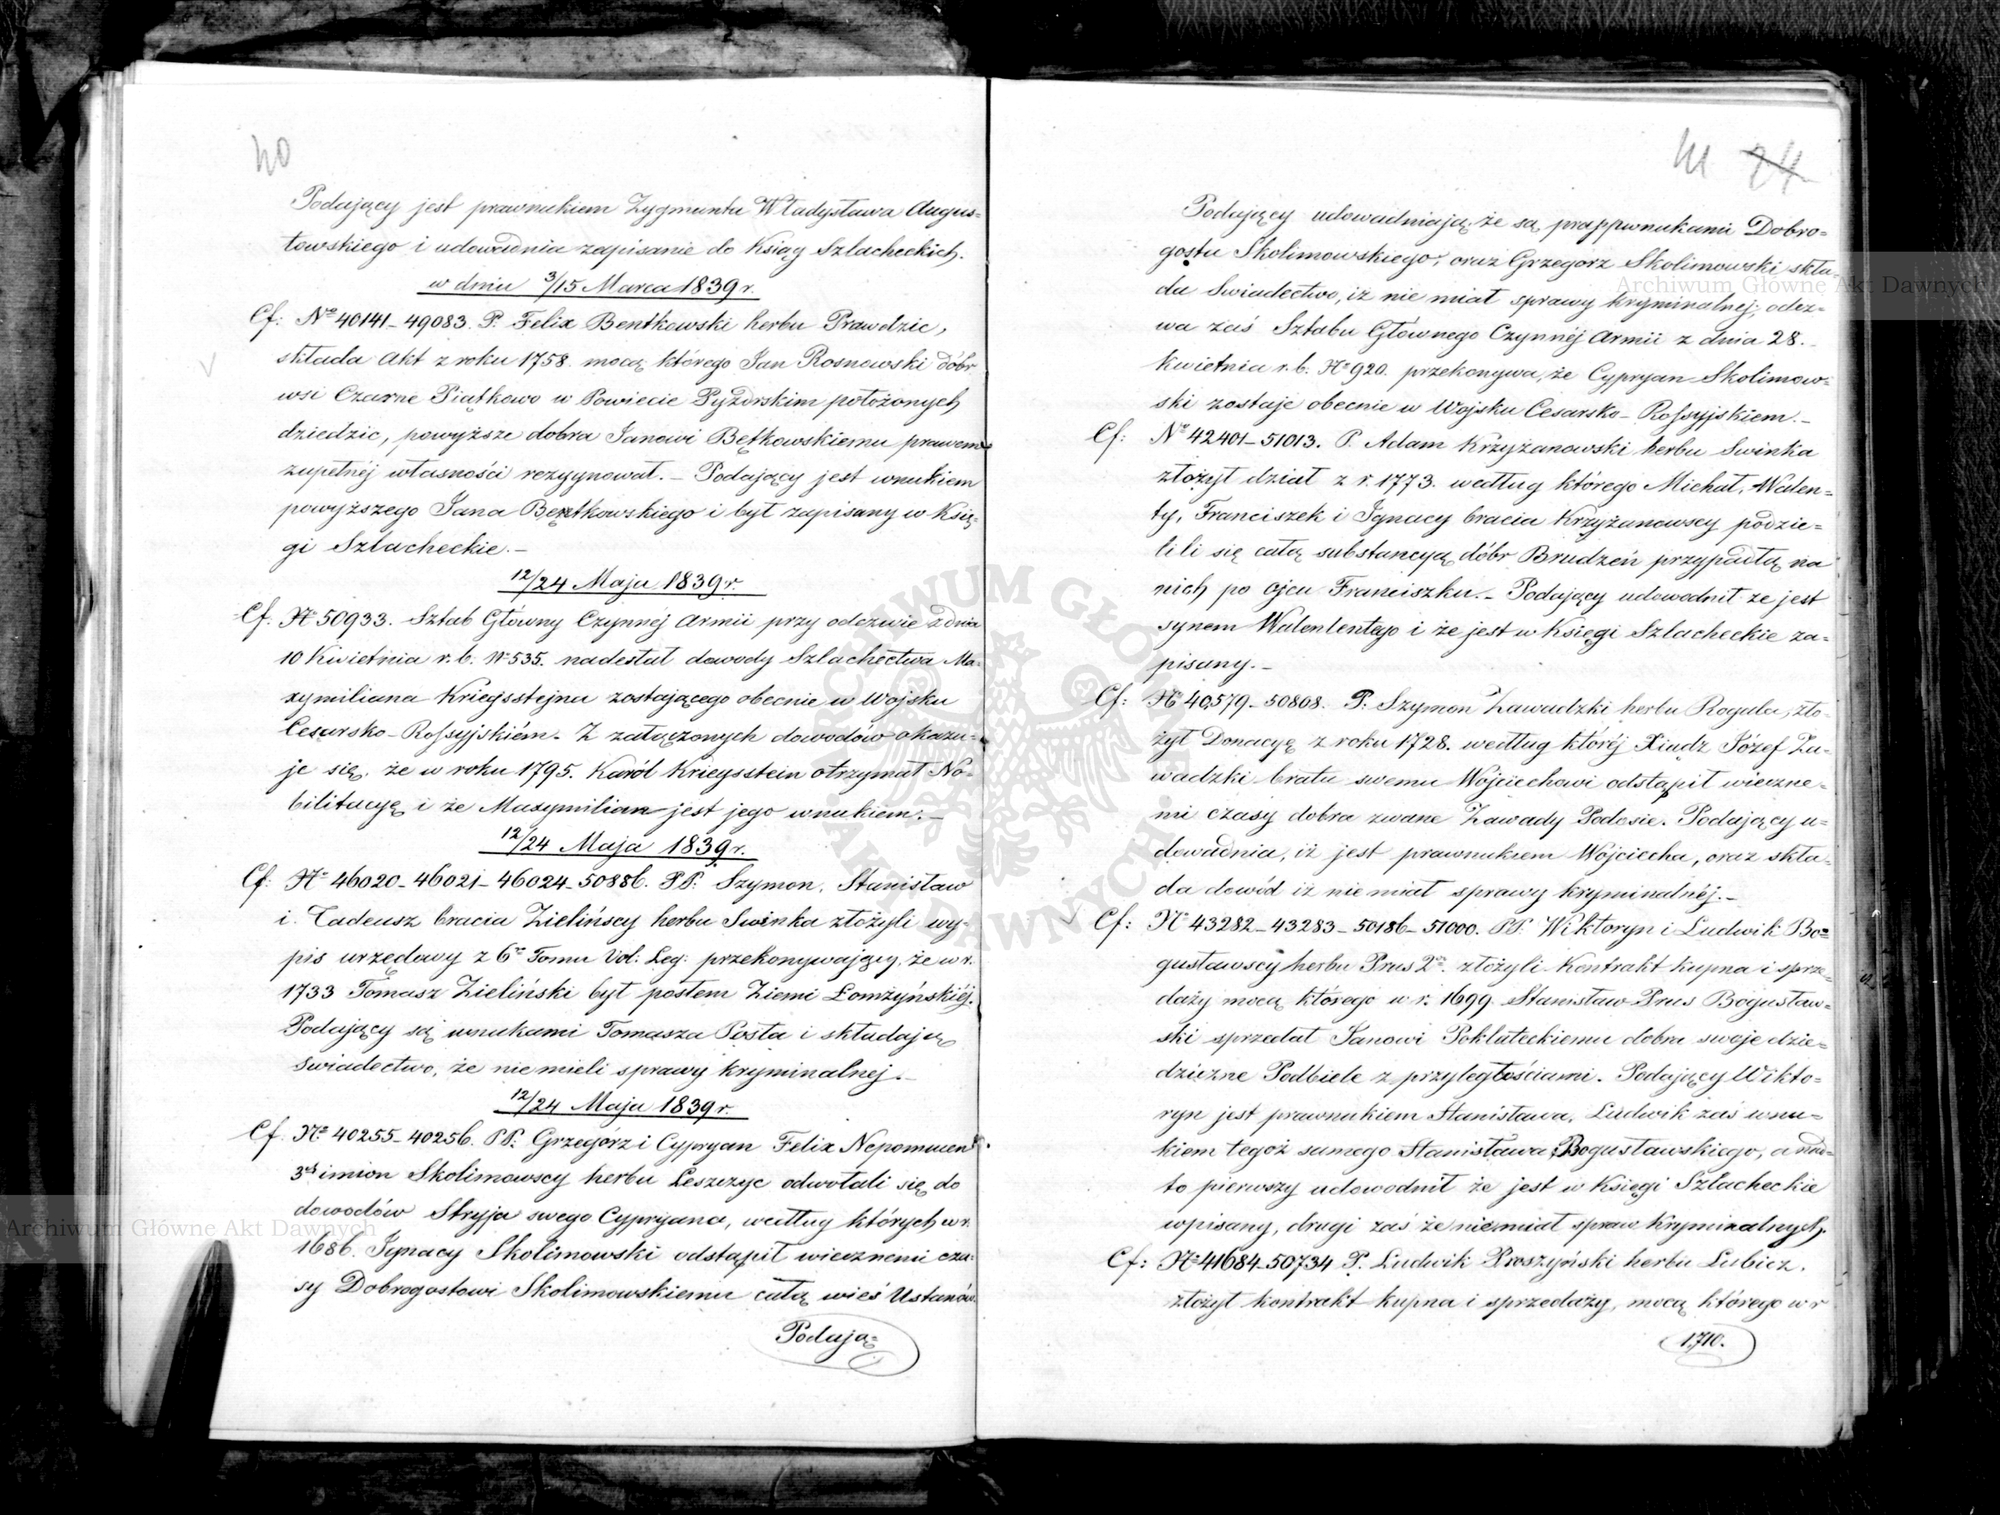 40
Podający jest prawnukiem Zygmunta Władysława Augus=
towskiego i udowadnia zapisanie do Ksiąg Szlacheckich.
w dniu 3/15 Marca 1839 r.
Cf: No 40141–49083. P. Felix Bentkowski herbu Prawdzic,
składa akt z roku 1758. mocą którego Jan Rosnowski dóbr
wsi Czarne Piątkowo w Powiecie Pyzdrskim położonych
dziedzic, powyższe dobra Janowi Bętkowskiemu prawem
zupełnéj własności rezygnował. – Podający jest wnukiem
powyższego Jana Bęntkowskiego i był zapisany w Księ=
gi Szlacheckie. –
12/24 Maja 1839 r.
Cf. No 50933. Sztab Główny Czynnéj Armii przy odezwie z dnia
10 Kwietnia r. b. No 535. nadesłał dowody Szlachectwa Ma=
xymiliana Kriegsstejna zostającego obecnie w Wojsku
Cesarsko-Rossyjskiém. Z załączonych dowodów okazu=
je się, że w roku 1795. Karól Kriegsstein otrzymał No=
bilitacyę i że Maxymilian jest jego wnukiem. –
12/24 Maja 1839 r.
Cf: No 46020–46021–46024–50886. PP: Szymon, Stanisław
i Tadeusz bracia Zielińscy herbu Swinka złożyli wy=
pis urzędowy z 6o Tomu Vol: Leg: przekonywający, że w r.
1733 Tomasz Zieliński był posłem Ziemi Łomżyńskiéj.
Podający są wnukami Tomasza Posła i składają
świadectwo, że nie mieli sprawy kryminalnej. –
12/24 Maja 1839 r.
Cf. No 40255–40256. PP. Grzegórz i Cypryan Felix Nepomucen
3ch imion Skolimowscy herbu Leszczyc odwołali się do
dowodów Stryja swego Cypryana, według których w r.
1686. Ignacy Skolimowski odstąpił wiecznemi cza=
sy Dobrogostowi Skolimowskiemu całą wieś Ustanów.
Podają=
41 24
Podający udowadniają, że są prappwnukami Dobro=
gosta Skolimowskiego, oraz Grzegorz Skolimowski skła=
da Swiadectwo, iż nie miał sprawy kryminalnej; odez=
wa zaś Sztabu Głównego Czynnéj Armii z dnia 28.
Kwietnia r. b. No 920. przekonywa, że Cypryan Skolimow=
ski zostaje obecnie w Wojsku Cesarsko-Rossyjskiem. –
Cf: No 42401–51013. P. Adam Krzyżanowski herbu Swinka
złożył dział z r. 1773. według którego Michał, Walen=
ty, Franciszek i Ignacy bracia Krzyżanowscy podzie=
lili się całą substancyą dóbr Brudzeń przypadłą na
nich po ojcu Franciszku. – Podający udowodnił że jest
synem Walententego i że jest w Księgi Szlacheckie za=
pisany. –
Cf: No 40,579–50808. P: Szymon Zawadzki herbu Rogala, zło=
żył Donacyę z roku 1728. według któréj Xiądz Józef Za=
wadzki bratu swemu Wojciechowi odstąpił wieczne=
mi czasy dobra zwane Zawady Podosie. Podający u=
dowadnia, iż jest prawnukiem Wojciecha, oraz skła=
da dowód iż nie miał sprawy kryminalnéj. –
Cf: No 43282–43283–50186–51000. PP. Wiktoryn i Ludwik Bo=
gusławscy herbu Prus 2o. złożyli Kontrakt kupna i sprze=
daży mocą którego w r. 1699. Stanisław Prus Bogusław=
ski sprzedał Janowi Pokłateckiemu dobra swoje dzie=
dziczne Podbiele z przyległościami. Podający Wikto=
ryn jest prawnukiem Stanisława, Ludwik zaś wnu=
kiem tegoż samego Stanisława Bogusławskiego, a nad=
to pierwszy udowodnił że jest w Księgi Szlacheckie
wpisany, drugi zaś że nie miał spraw kryminalnych.
Cf: No 41684–50734 P. Ludwik Proszyński herbu Lubicz,
złożył kontrakt kupna i sprzedaży, mocą którego w r
1710.
Archiwum Główne Akt Dawnych
Archiwum Główne Akt Dawnych
ARCHIWUM GŁÓWNE AKT DAWNYCH